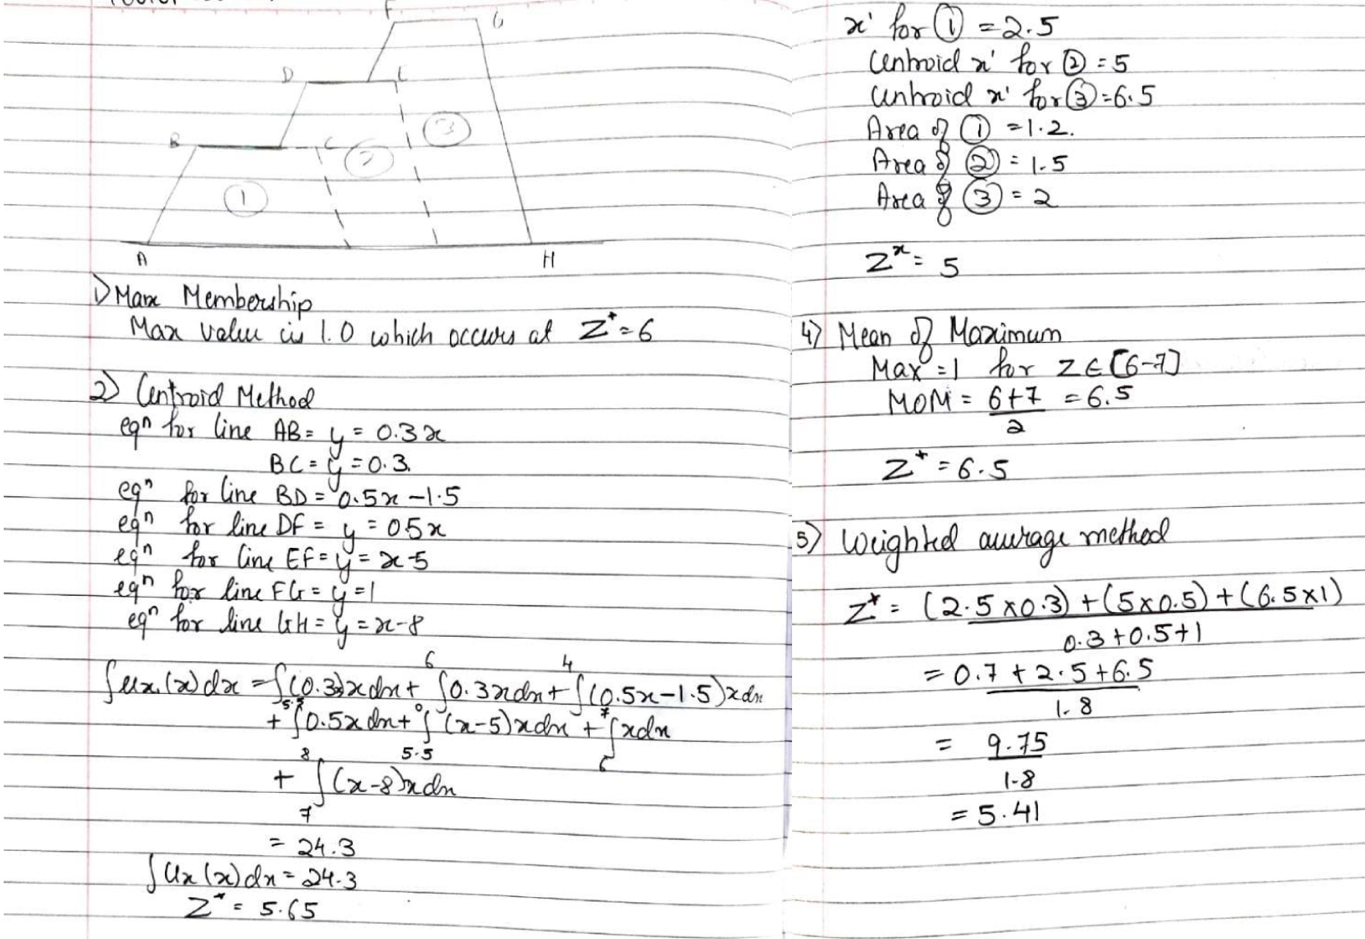 F G
D E
B C
① ② ③
A H
1) Max Membership
Max value is 1.0 which occurs at Z* = 6
2) Centroid Method
eqn for line AB = y = 0.3x
BC = y = 0.3
eqn for line BD = 0.5x - 1.5
eqn for line DF = y = 05x
eqn for line EF = y = x-5
eqn for line FG = y = 1
eqn for line GH = y = x-8
∫ux.(x)dx = ∫(0.3)x dx + ∫0.3x dx + ∫(0.5x - 1.5)x dx
6 4
+ ∫0.5x dx + ∫(x-5)x dx + ∫x dx
5.5 6 7
8 5.5 6
+ ∫(x-8)x dx
7
= 24.3
∫ux(x)dx = 24.3
Z* = 5.65
x' for ① = 2.5
Centroid x' for ② = 5
Centroid x' for ③ = 6.5
Area of ① = 1.2.
Area of ② = 1.5
Area of ③ = 2
Zx = 5
4) Mean of Maximum
Max = 1 for Z ∈ [6-7]
MOM = 6+7 = 6.5
2
Z* = 6.5
5) Weighted average method
Z* = (2.5 x 0.3) + (5 x 0.5) + (6.5 x 1)
0.3 + 0.5 + 1
= 0.7 + 2.5 + 6.5
1.8
= 9.75
1.8
= 5.41